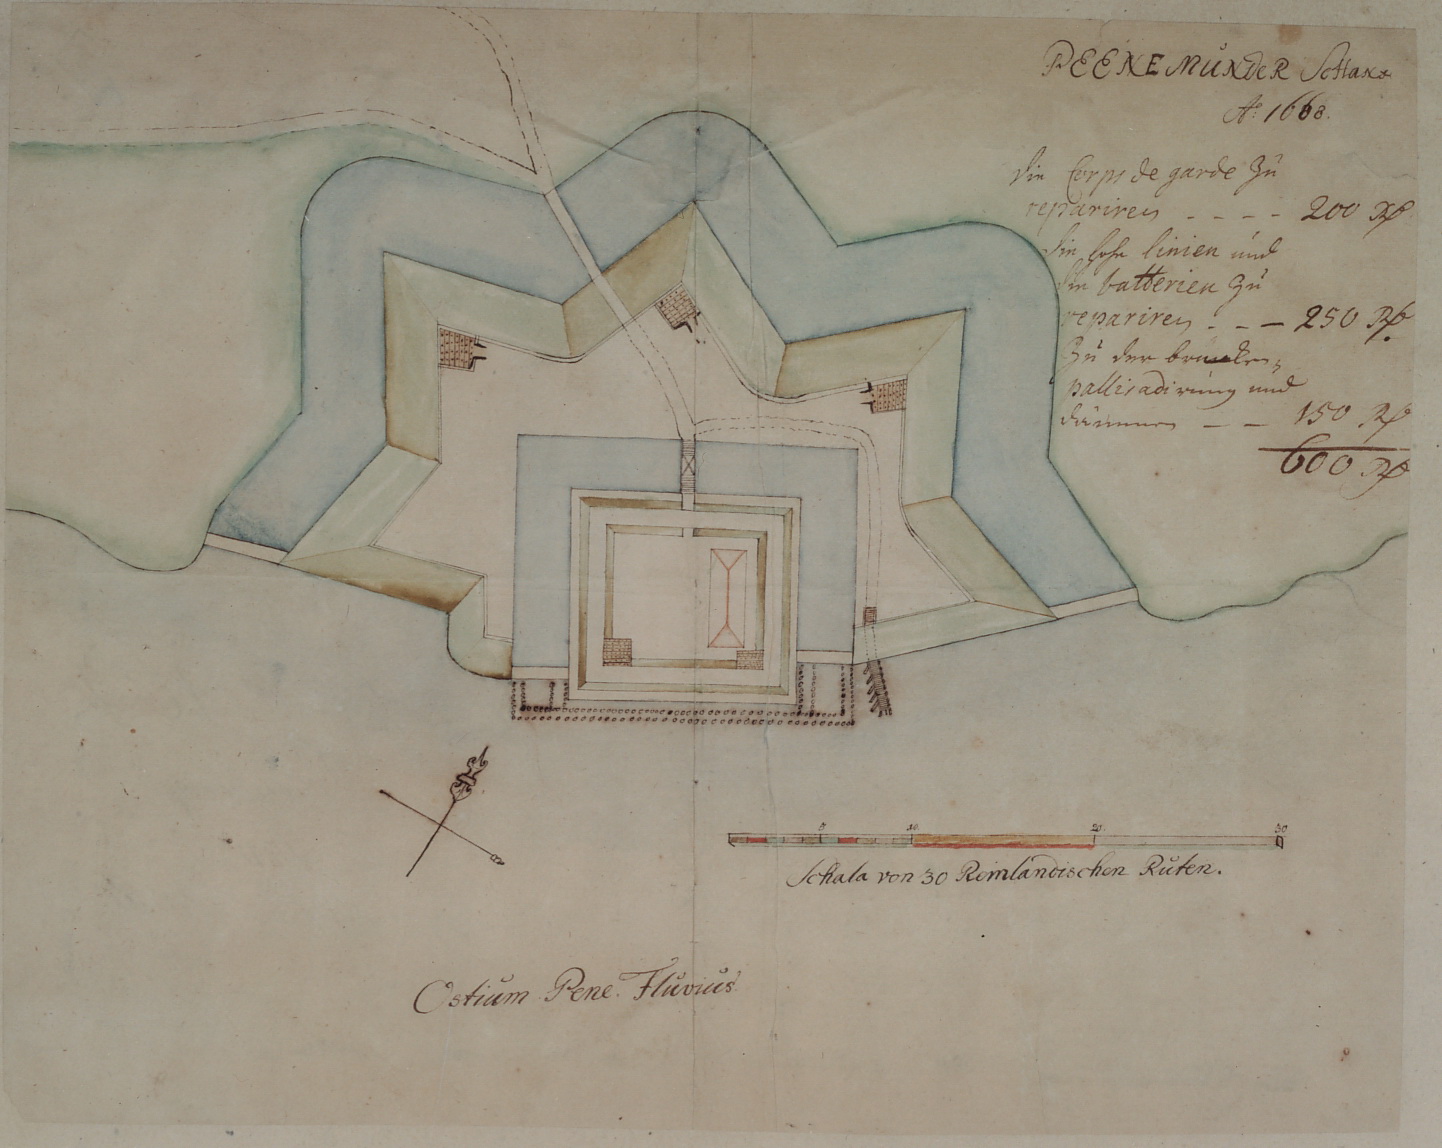 PEENEMÜNDER SCHanz
Aᵒ 1668.
Die Corps de garde Zŭ
repariren - - - - 200 Rß
Die hohe linien ŭnd
Die batterien Zŭ
repariren - - - 250 Rß
Zŭ der brŭcken,
pallisadirŭng ŭnd
dämmen - - 150 Rß
600 Rß
5 10 20 30
Schala von 30 Reinlandischen Rŭten.
Ostiŭm Pene Flŭviŭs